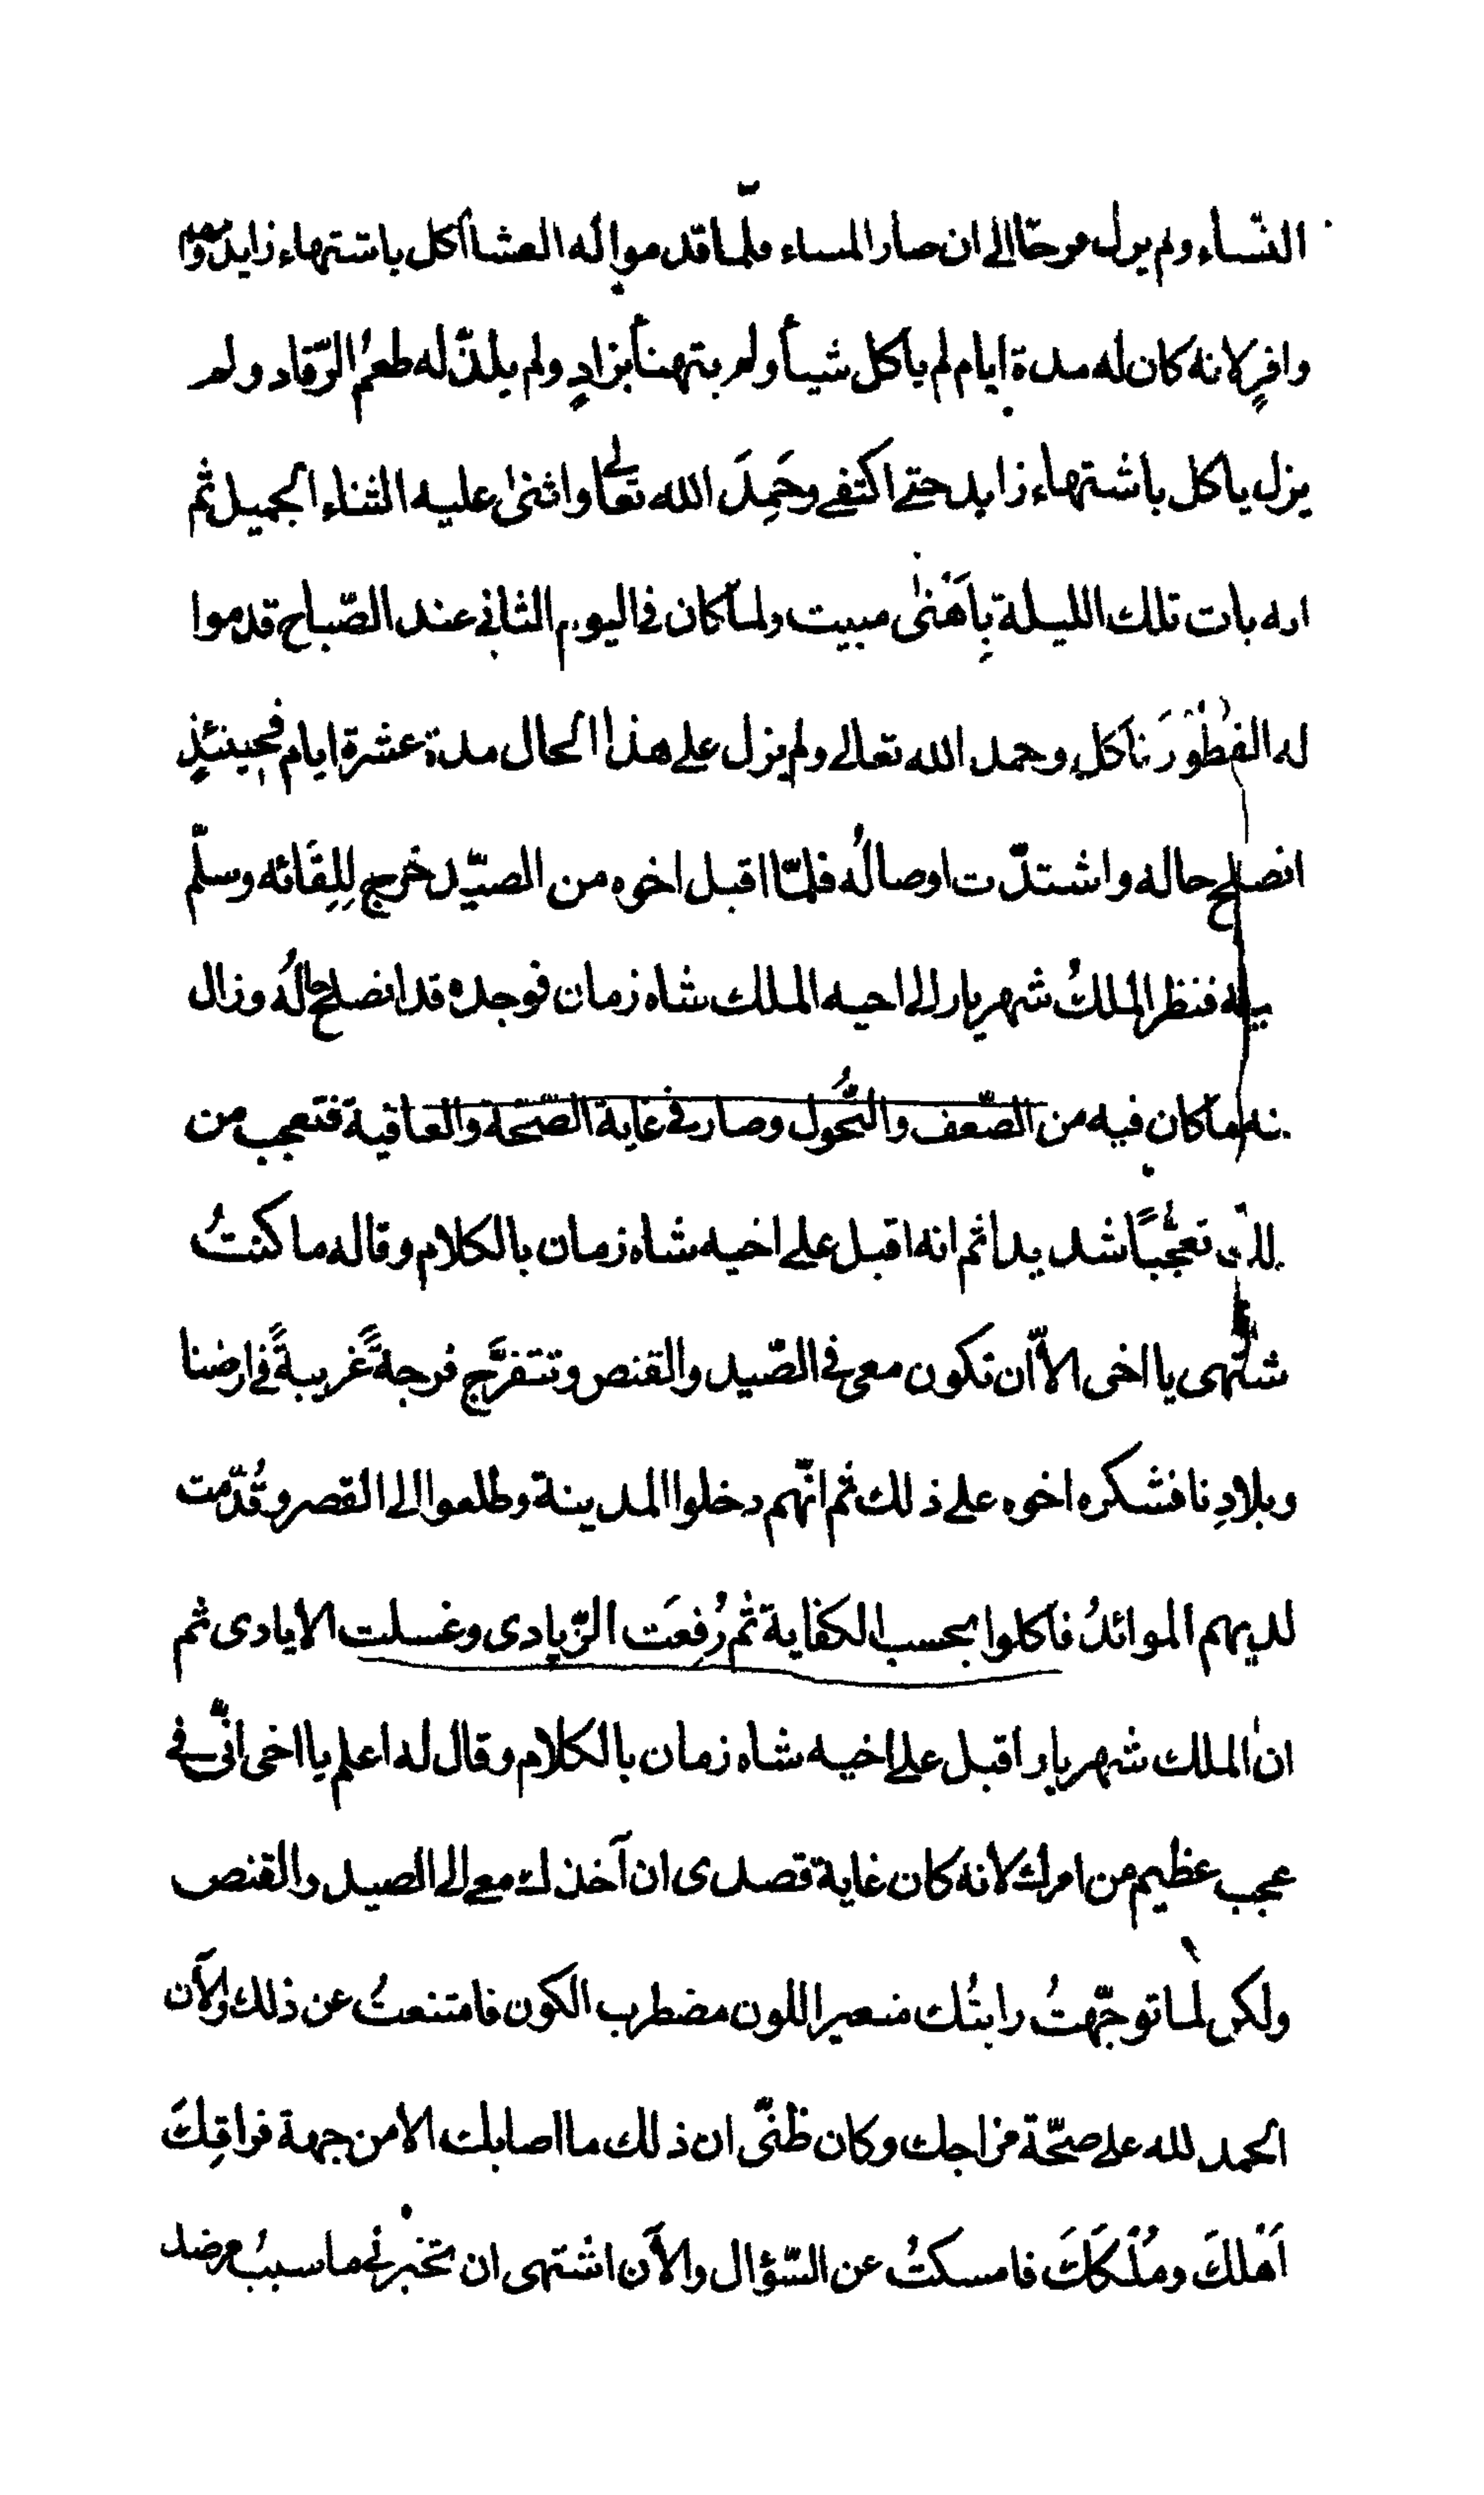 النسَاء ولم يزل فرحًا الى ان صار المساء فلمّا قدموا له العشا أكل باشتهاء زايد
وافرٍ لانه كان له مدة ايام لم ياكل شيأ ولم يتهنأ بزادٍ ولم يلذّ له طعمُ الرّقاد ولم
يزل ياكل باشتهاء زايد حتى اكتفى وحَمِدَ الله تعالى واثنى عليه الثناء الجميل ثم
انه بات تلك الليلة بِاَهْنىٰ مبيت ولما كان فى اليوم الثانى عند الصّباح قدموا
له الفطُوْرَ فاكل وحمد الله تعالى ولم يزل على هذا الحال مدة عشرة ايام فحِينئذٍ
انصلح حاله واشتدّت اوصالُه فلمّا اقبل اخوه من الصيّد خرج لِلِقَائه وسلّم
عليه فنظر الملكُ شهريار الى اخيه الملك شاه زمان فوجده قد انصلح حالُه وزال
عنه ما كان فيه من الضّعف والنُّحول وصار فى غاية الصّحة والعافية فتعجب من
ذلك تعجُّبًا شديدا ثم انه اقبل على اخيه شاه زمان بالكلام وقال له ما كنتُ
اشتهى يا اخى الاّ ان تكون معى فى الصّيد والقنص وتتفرَّج فرجةً غريبةً فى ارضنا
وبلادِنا فشكره اخوه على ذلك ثم انّهم دخلوا المدينة وطلعوا الى القصر وقُدّمت
لديهم الموائدُ فاكلوا بحسب الكفاية ثم رُفعَت الزّيادى وغسلت الايادى ثم
ان الملك شهريار اقبل على اخيه شاه زمان بالكلام وقال له اعلم يا اخى انّى فى
عجب عظيم من امرك لانه كان غاية قصدى ان آخذك معى الى الصيد والقنص
ولكن لما توجّهتُ رايتُك متغير اللون مضطرب الكون فامتنعتُ عن ذلك والآن
الحمد لله على صحّة مزاجك وكان ظنّى ان ذلك ما اصابك الا من جهة فراقِكَ
اَهْلكَ ومُلْكَكَ فامسكتُ عن السّؤال والآن اشتهى ان تخبرنى ما سببُ مرضك